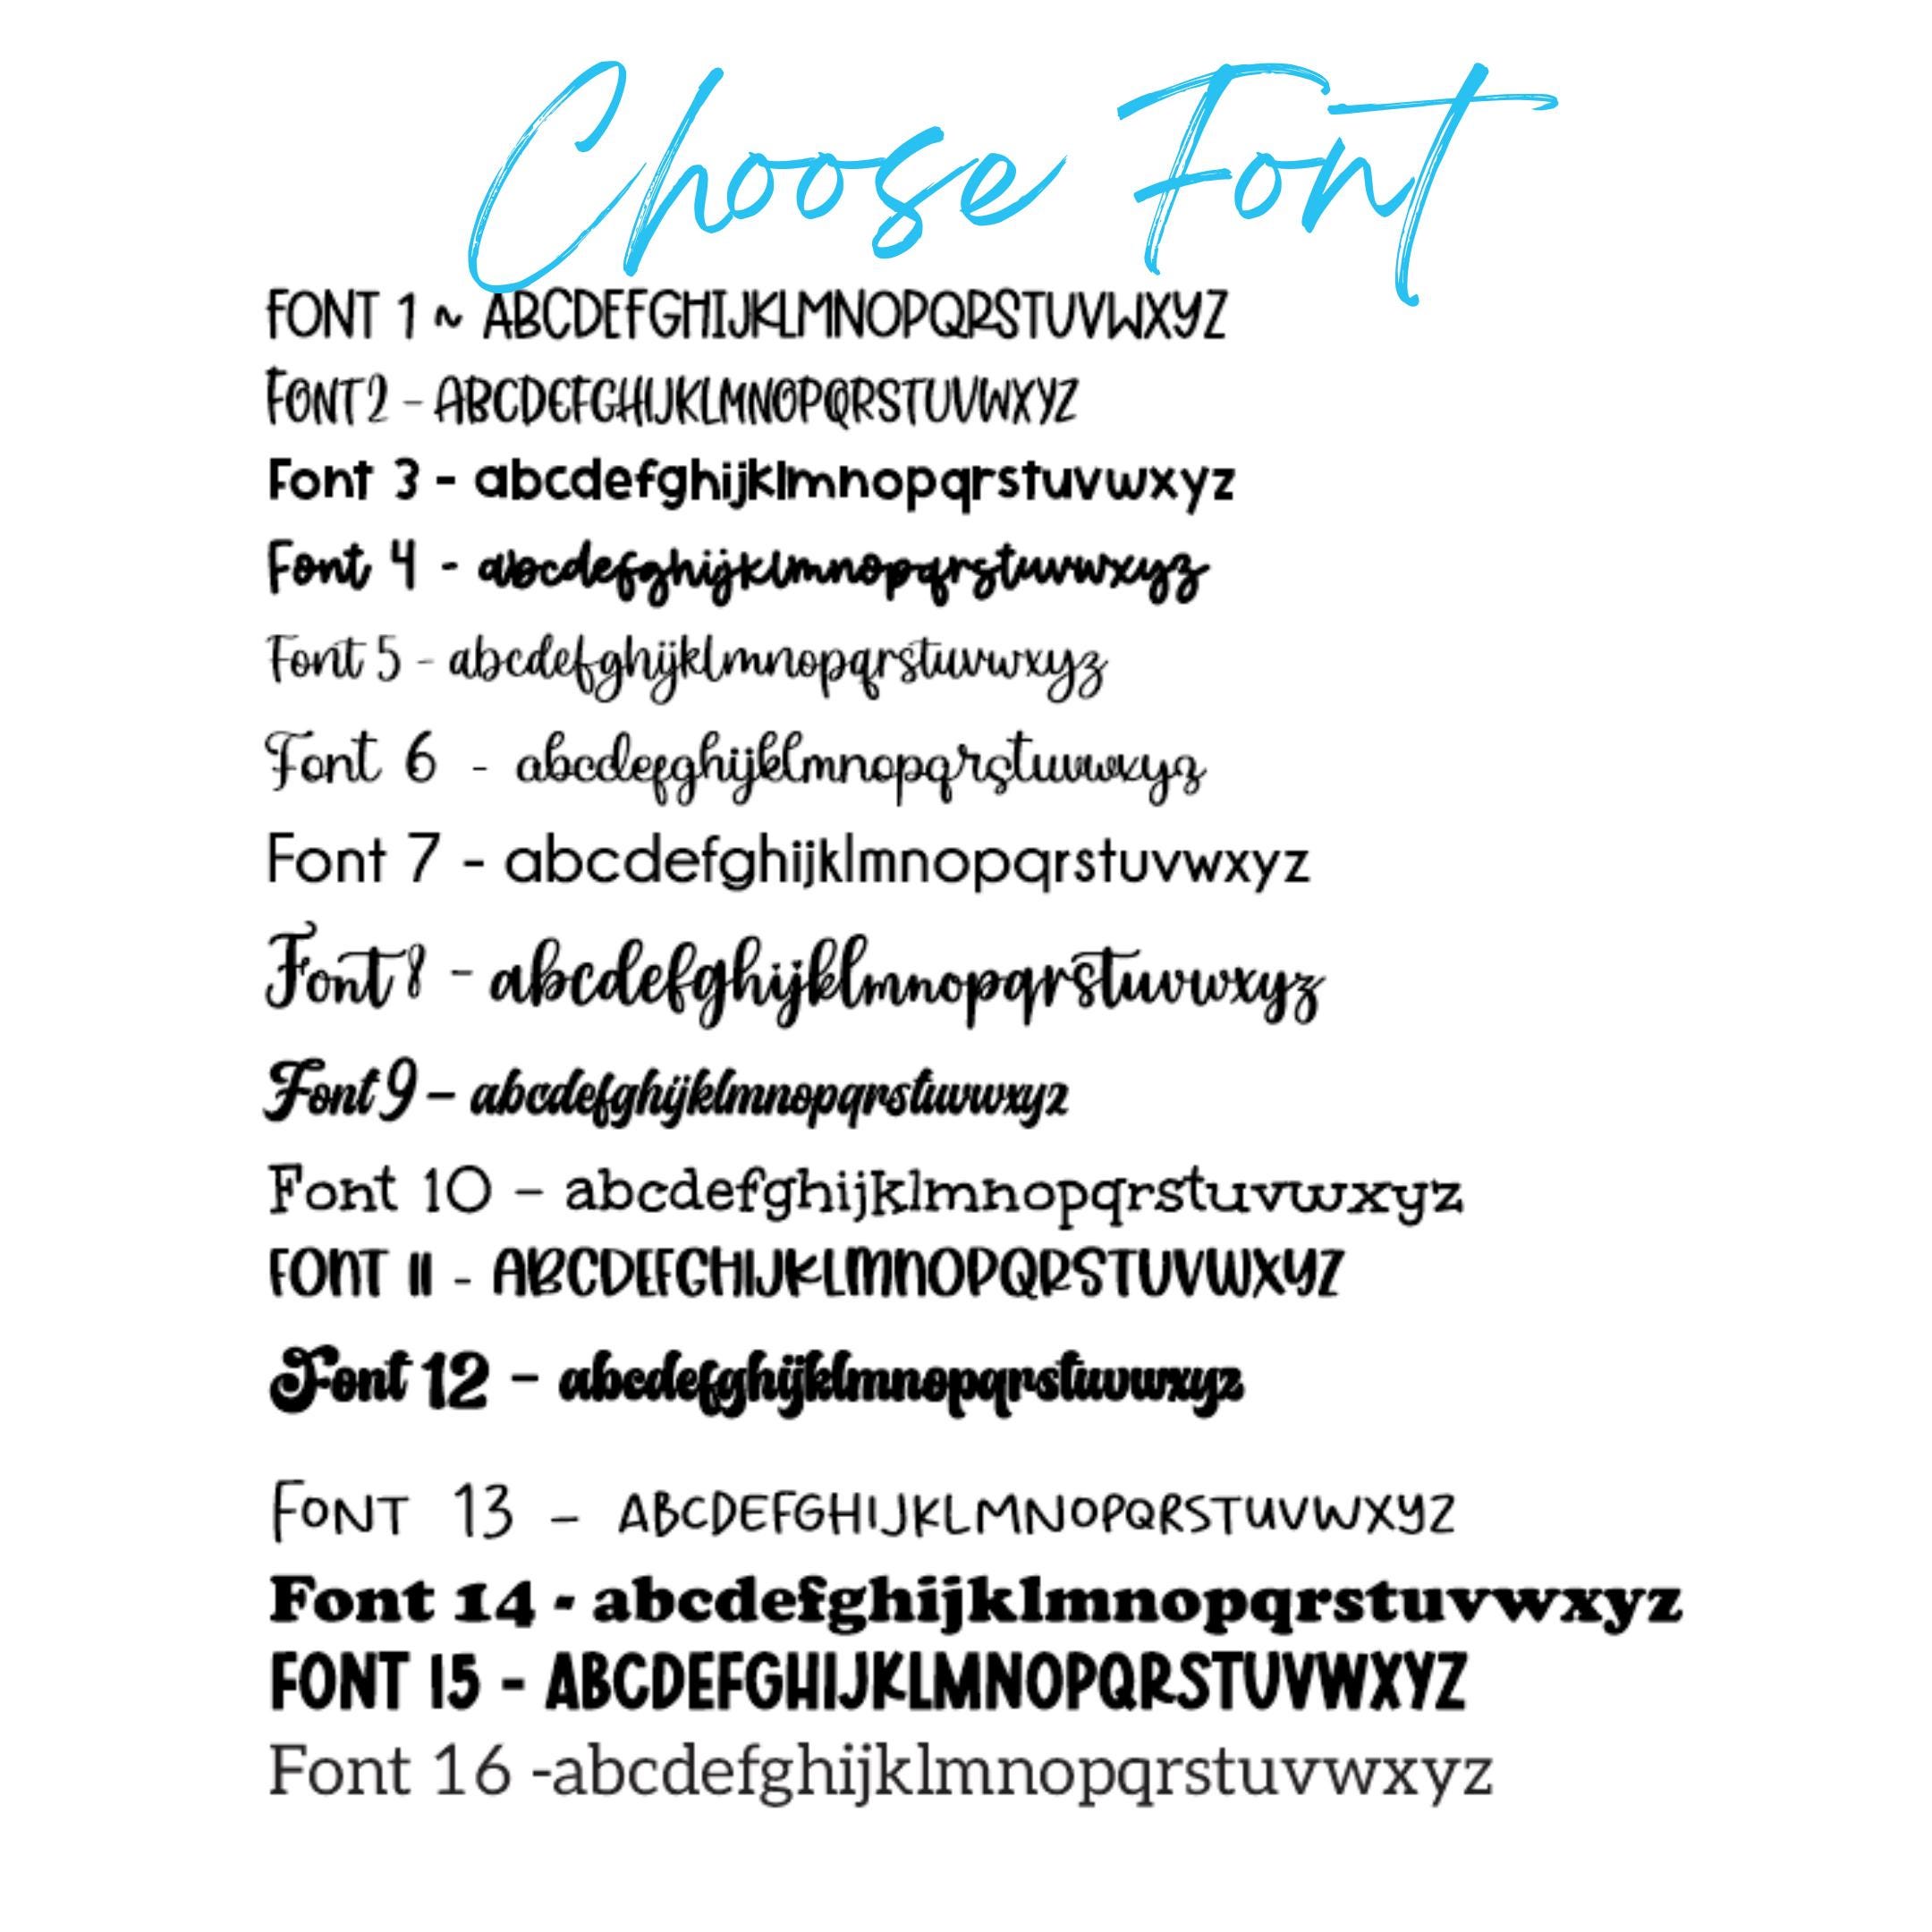 Choose Font
FONT 1 ~ ABCDEFGHIJKLMNOPQRSTUVWXYZ
FONT 2 - ABCDEFGHIJKLMNOPQRSTUVWXYZ
Font 3 - abcdefghijklmnopqrstuvwxyz
Font 4 - abcdefghijklmnopqrstuvwxyz
Font 5 - abcdefghijklmnopqrstuvwxyz
Font 6 - abcdefghijklmnopqrstuvwxyz
Font 7 - abcdefghijklmnopqrstuvwxyz
Font 8 - abcdefghijklmnopqrstuvwxyz
Font 9 - abcdefghijklmnopqrstuvwxyz
Font 10 - abcdefghijklmnopqrstuvwxyz
FONT 11 - ABCDEFGHIJKLMNOPQRSTUVWXYZ
Font 12 - abcdefghijklmnopqrstuvwxyz
FONT 13 - ABCDEFGHIJKLMNOPQRSTUVWXYZ
Font 14 - abcdefghijklmnopqrstuvwxyz
FONT 15 - ABCDEFGHIJKLMNOPQRSTUVWXYZ
Font 16 -abcdefghijklmnopqrstuvwxyz